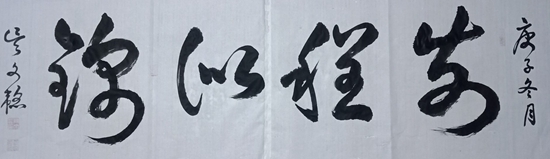 庚子冬月
前程似锦
吴文